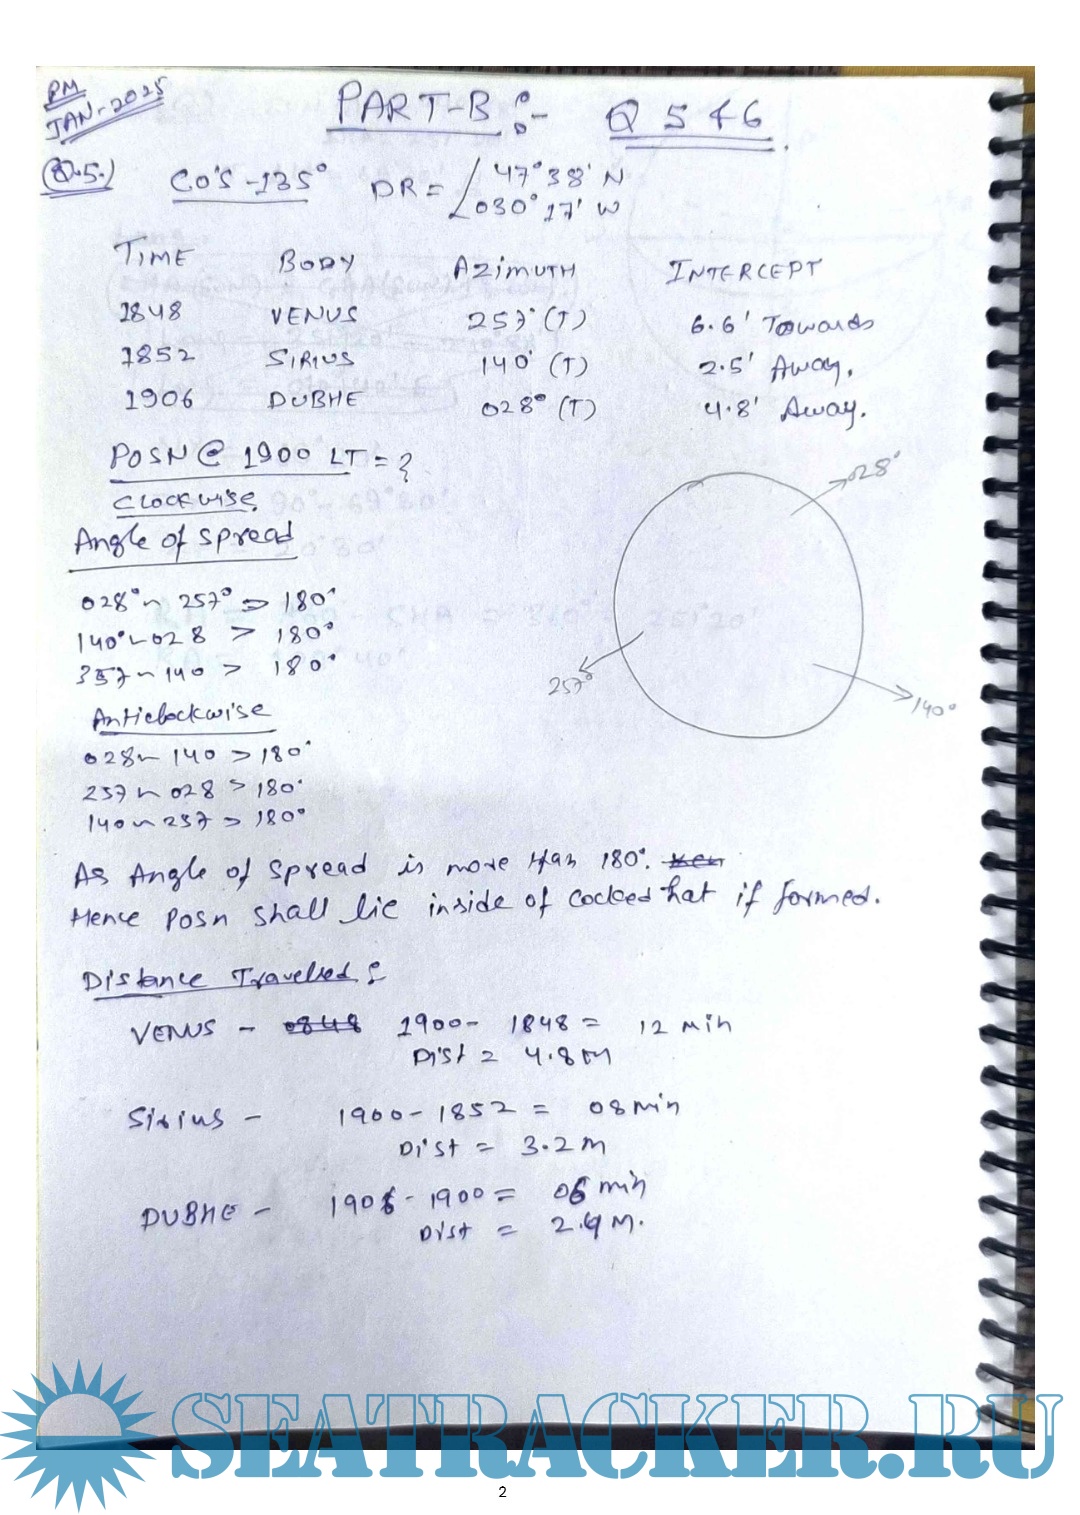 PM
JAN-2025
PART-B:- Q 5 & 6.
(Q.5.) CO'S -135° DR = 47°38' N
030°17' W
TIME BODY AZIMUTH INTERCEPT
1848 VENUS 257° (T) 6.6' Towards
1852 SIRIUS 140° (T) 2.5' Away.
1906 DUBHE 028° (T) 4.8' Away.
POSN @ 1900 LT = ?
CLOCKWISE.
Angle of spread
028°
028° ~ 257° => 180°
140° ~ 028 > 180°
357 ~ 140 > 180°
257°
140°
Anticlockwise
028 ~ 140 > 180°
257 ~ 028 > 180°
140 ~ 257 > 180°
As Angle of spread is more than 180°.
Hence Posn shall lie inside of cocked hat if formed.
Distance Travelled :
VENUS - 0848 1900 - 1848 = 12 min
Dist = 4.8 M
Sirius - 1900 - 1852 = 08 min
Dist = 3.2 M
DUBHE - 1906 - 1900 = 06 min
Dist = 2.4 M.
SEATRACKER.RU
2